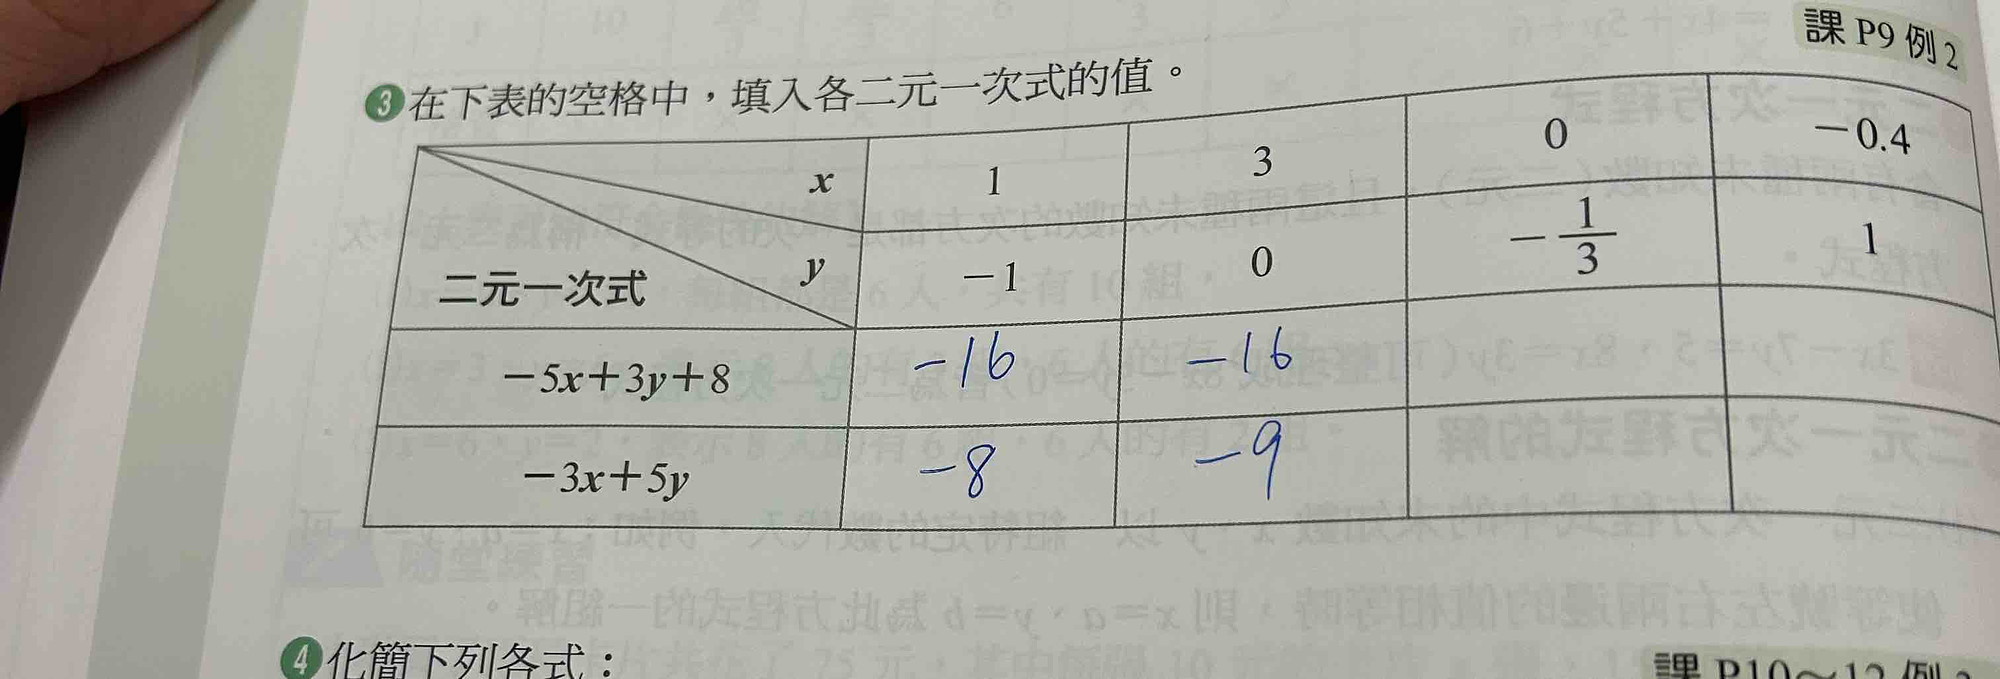 課 P9 例 2
❸在下表的空格中，填入各二元一次式的值。
x 1 3 0 −0.4
二元一次式 y −1 0 −1/3 1
−5x＋3y＋8 −16 −16
−3x＋5y −8 −9
❹化簡下列各式：
課 P10～12 例